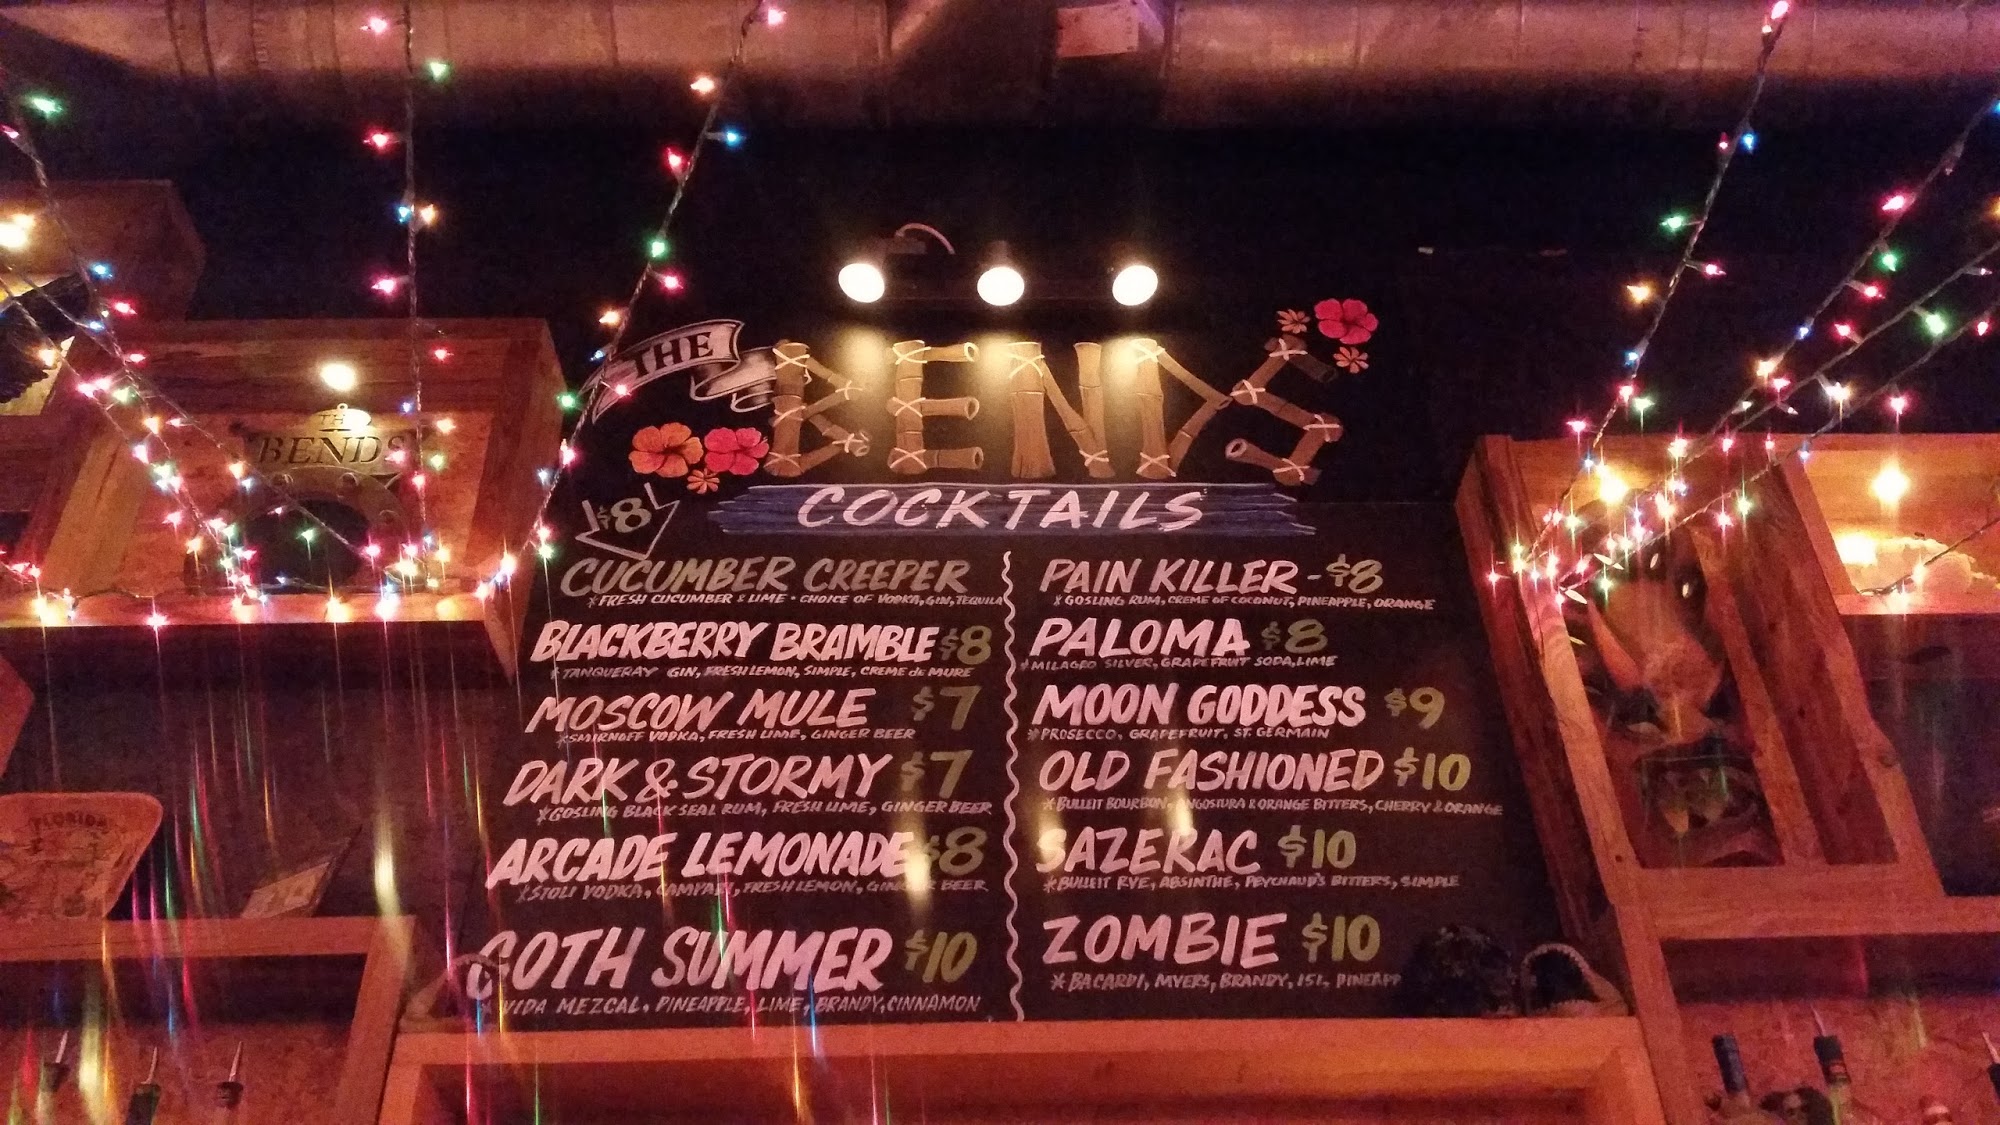 THE BENDS
COCKTAILS
THE
BENDS
$8
CUCUMBER CREEPER
*FRESH CUCUMBER & LIME - CHOICE OF VODKA, GIN, TEQUILA
BLACKBERRY BRAMBLE $8
*TANQUERAY GIN, FRESH LEMON, SIMPLE, CREME de MURE
MOSCOW MULE $7
*SMIRNOFF VODKA, FRESH LIME, GINGER BEER
DARK & STORMY $7
*GOSLING BLACK SEAL RUM, FRESH LIME, GINGER BEER
ARCADE LEMONADE $8
*STOLI VODKA, CAMPARI, FRESH LEMON, GINGER BEER
GOTH SUMMER $10
*VIDA MEZCAL, PINEAPPLE, LIME, BRANDY, CINNAMON
PAIN KILLER - $8
*GOSLING RUM, CREME OF COCONUT, PINEAPPLE, ORANGE
PALOMA $8
*MILAGRO SILVER, GRAPEFRUIT SODA, LIME
MOON GODDESS $9
*PROSECCO, GRAPEFRUIT, ST. GERMAIN
OLD FASHIONED $10
*BULLEIT BOURBON, ANGOSTURA & ORANGE BITTERS, CHERRY & ORANGE
SAZERAC $10
*BULLEIT RYE, ABSINTHE, PEYCHAUD'S BITTERS, SIMPLE
ZOMBIE $10
*BACARDI, MYERS, BRANDY, 151, PINEAPP
FLORIDA